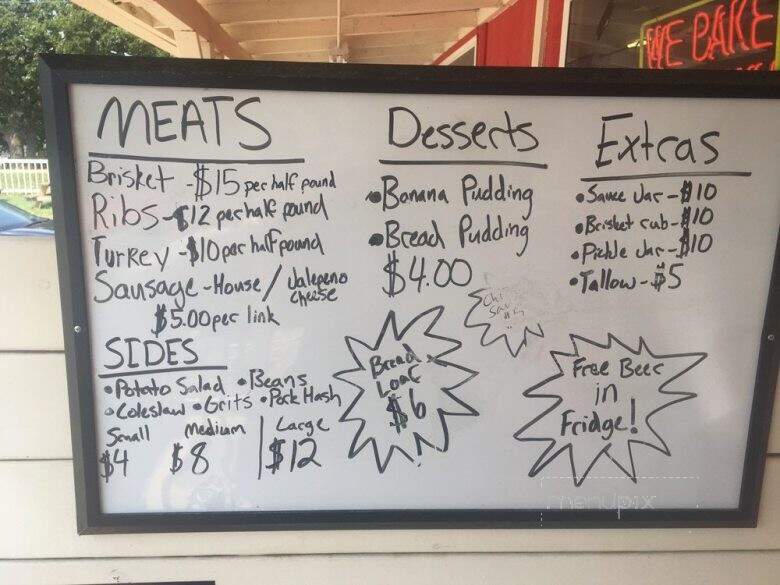 WE BAKE
MEATS
Brisket - $15 per half pound
Ribs - $12 per half pound
Turkey - $10 per half pound
Sausage - House / Jalepeno Cheese
$5.00 per link
SIDES
• Potato Salad • Beans
• Coleslaw • Grits • Pork Hash
Small Medium Large
$4 $8 $12
Desserts
• Banana Pudding
• Bread Pudding
$4.00
Bread
Loaf
$6
Extras
• Sauce Jar - $10
• Brisket rub - $10
• Pickle Jar - $10
• Tallow - $5
Free Beer
in
Fridge!
menupix